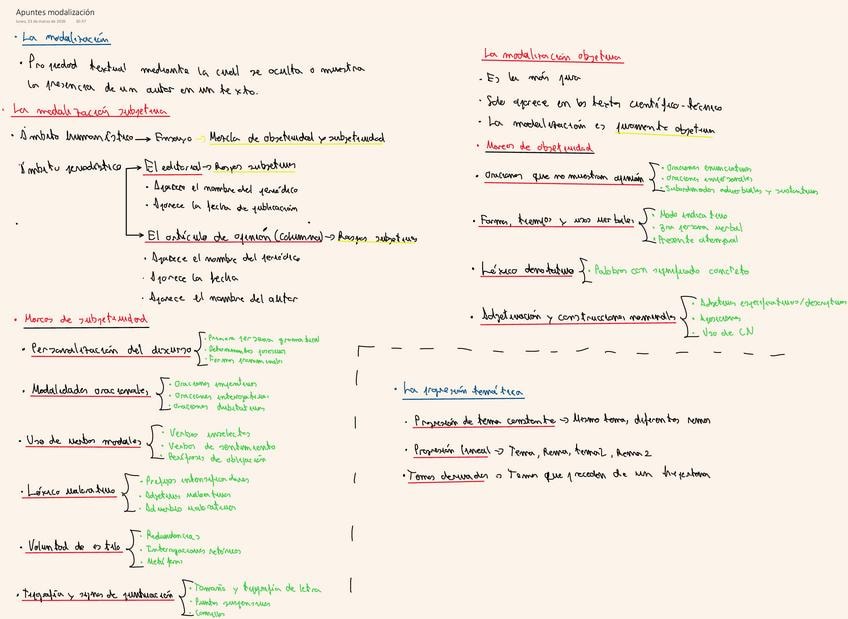 Apuntes modalización
lunes, 23 de marzo de 2020 20:47
· La modalización
· Propiedad textual mediante la cual se oculta o muestra
la presencia de un autor en un texto.
· La modalización subjetiva
· Ámbito humanístico → Ensayo → Mezcla de objetividad y subjetividad
Ámbito periodístico → El editorial → Rasgos subjetivos
· Aparece el nombre del periódico
· Aparece la fecha de publicación
→ El artículo de opinión (columna) → Rasgos subjetivos
· Aparece el nombre del periódico
· Aparece la fecha
· Aparece el nombre del autor
· Marcas de subjetividad
· Personalización del discurso
· Primera persona gramatical
· Determinantes posesivos
· Formas pronominales
· Modalidades oracionales
· Oraciones
· Oraciones interrogativas
· Oraciones dubitativas
· Uso de verbos modales
· Verbos
· Verbos de sentimiento
· Perífrasis de obligación
· Léxico valorativo
· Prefijos intensificadores
· Adjetivos valorativos
· Adverbios valorativos
· Voluntad de estilo
· Redundancias
· Interrogaciones retóricas
· Metáforas
· Tipografía y signos de puntuación
· Tamaño y tipografía de letra
· Puntos suspensivos
· Comillas
La modalización objetiva
· Es la más pura
· Solo aparece en los textos científico-técnico
· La modalización es puramente objetiva
· Marcas de objetividad
· Oraciones que no muestran opinión
· Oraciones enunciativas
· Oraciones impersonales
· Subordinadas adverbiales y sustantivas
· Formas, tiempos y usos verbales
· Modo indicativo
· 3ra persona verbal
· Presente atemporal
· Léxico denotativo
· Palabras con significado concreto
· Adjetivación y construcciones nominales
· Adjetivos especificativos/descriptivos
· Aposiciones
· Uso de CN
· La progresión temática
· Progresión de tema constante → Mismo tema, diferentes remas
· Progresión lineal → Tema, Rema, tema2, Rema2
· Temas derivados → Temas que proceden de un hipertema